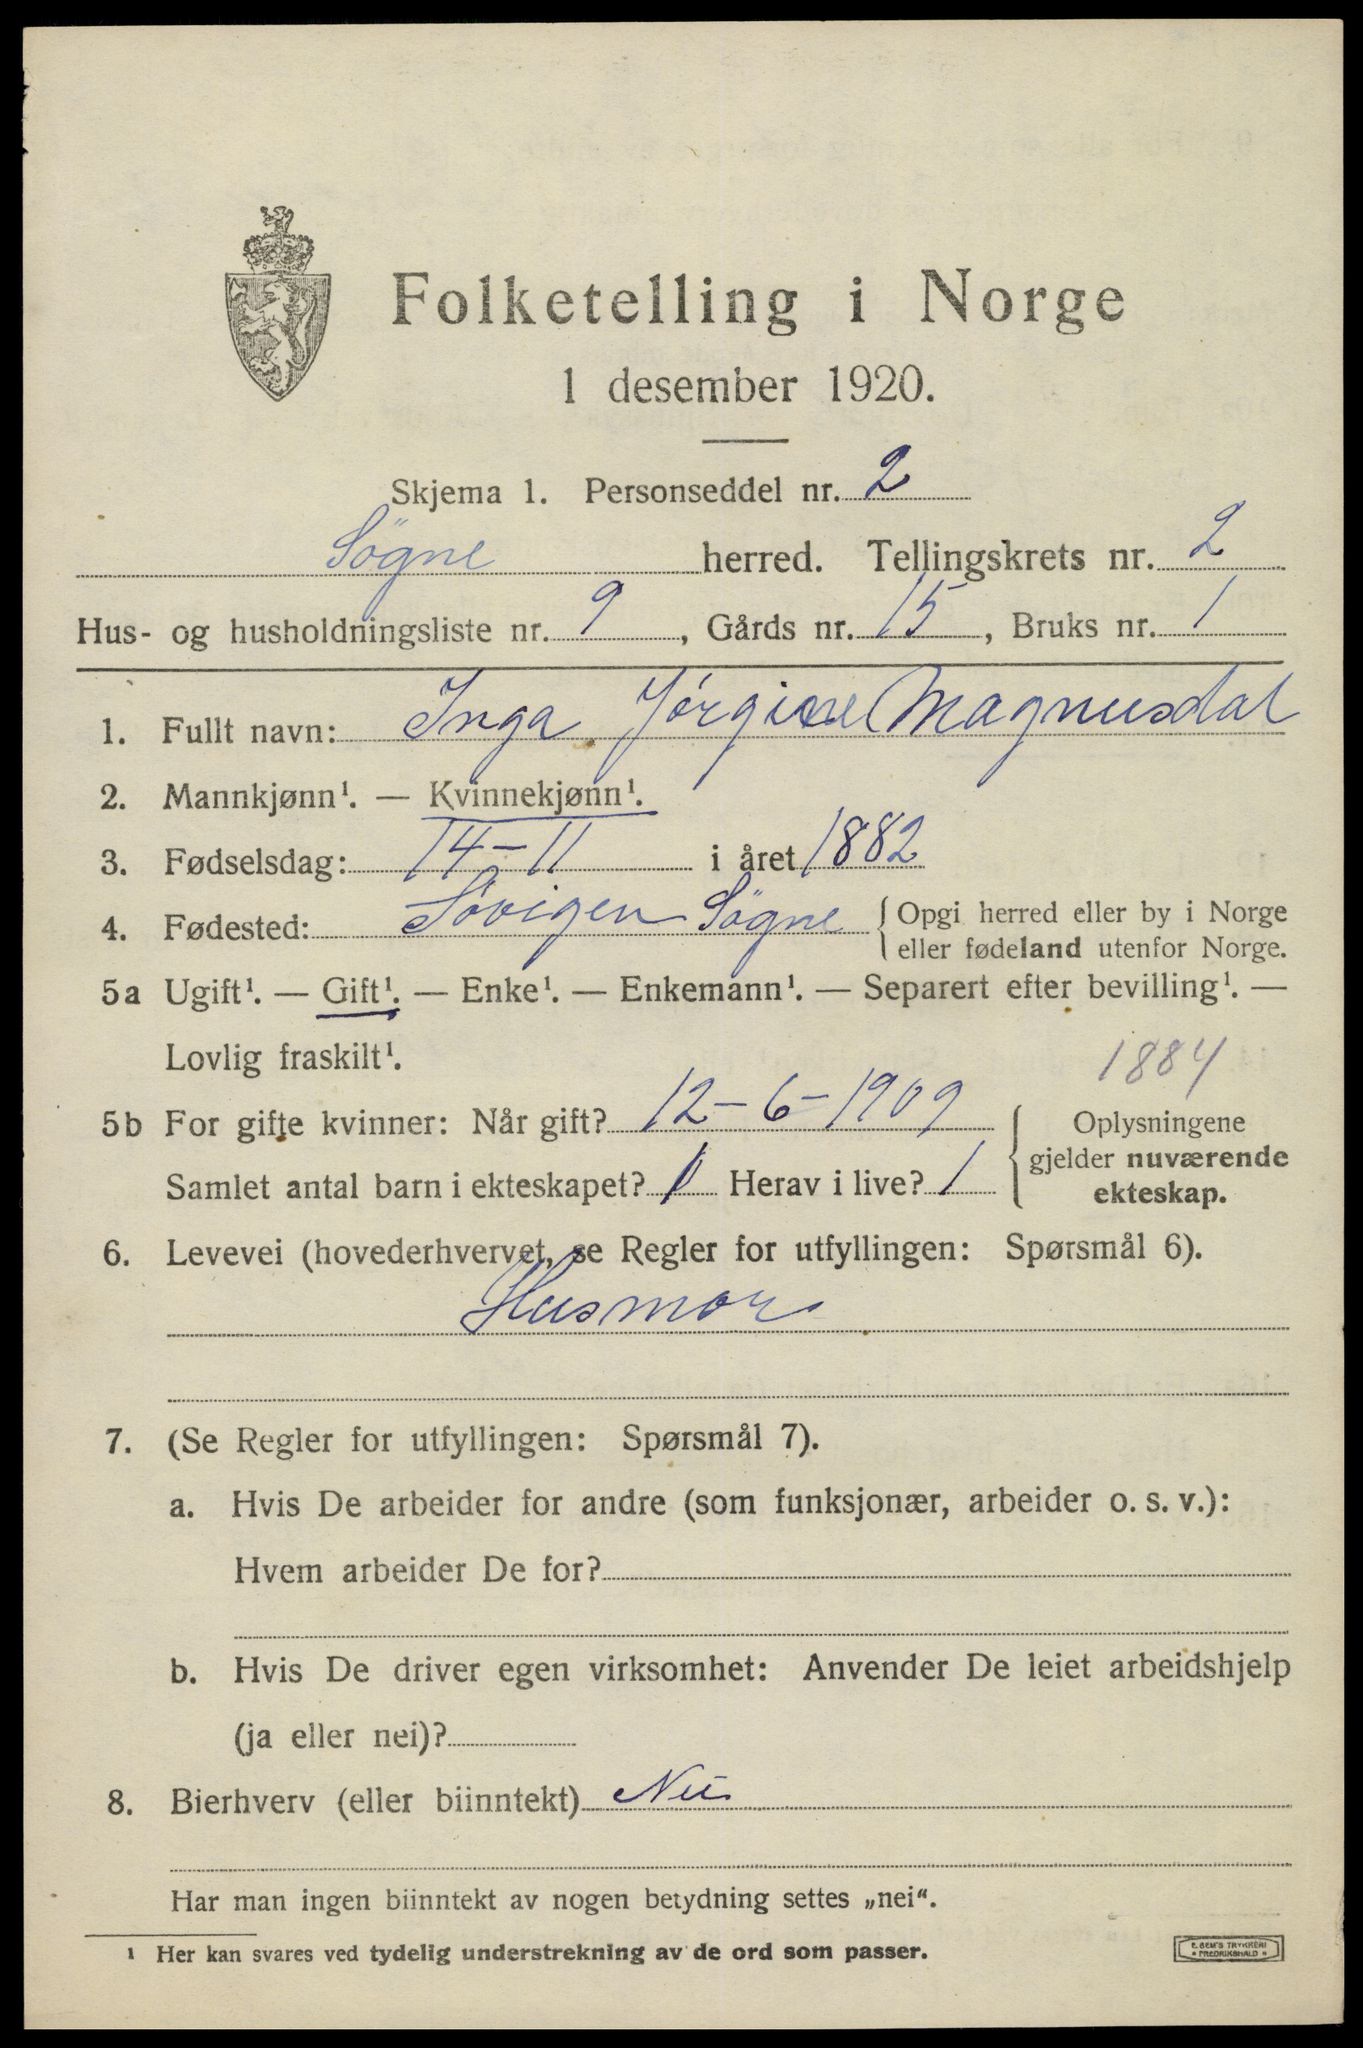 Folketelling i Norge
1 desember 1920.
Skjema 1. Personseddel nr. 2
Søgne herred. Tellingskrets nr. 2
Hus- og husholdningsliste nr. 9, Gårds nr. 15, Bruks nr. 1
1. Fullt navn: Inga Jørgine Magnusdal
2. Mannkjønn¹. — Kvinnekjønn¹.
3. Fødselsdag: 14-11 i året 1882
4. Fødested: Søvigen Søgne { Opgi herred eller by i Norge
eller fødeland utenfor Norge.
5a Ugift¹. — Gift¹. — Enke¹. — Enkemann¹. — Separert efter bevilling¹. —
Lovlig fraskilt¹.
1884
5b For gifte kvinner: Når gift? 12-6-1909
Samlet antal barn i ekteskapet? 1 Herav i live? 1
{ Oplysningene
gjelder nuværende
ekteskap.
6. Levevei (hovederhvervet, se Regler for utfyllingen: Spørsmål 6).
Husmor
7. (Se Regler for utfyllingen: Spørsmål 7).
a. Hvis De arbeider for andre (som funksjonær, arbeider o. s. v.):
Hvem arbeider De for?
b. Hvis De driver egen virksomhet: Anvender De leiet arbeidshjelp
(ja eller nei)?
8. Bierhverv (eller biinntekt) Nei
Har man ingen biinntekt av nogen betydning settes „nei“.
¹ Her kan svares ved tydelig understrekning av de ord som passer.
E. SEM'S TRYKKERI
* FREDRIKSHALD *